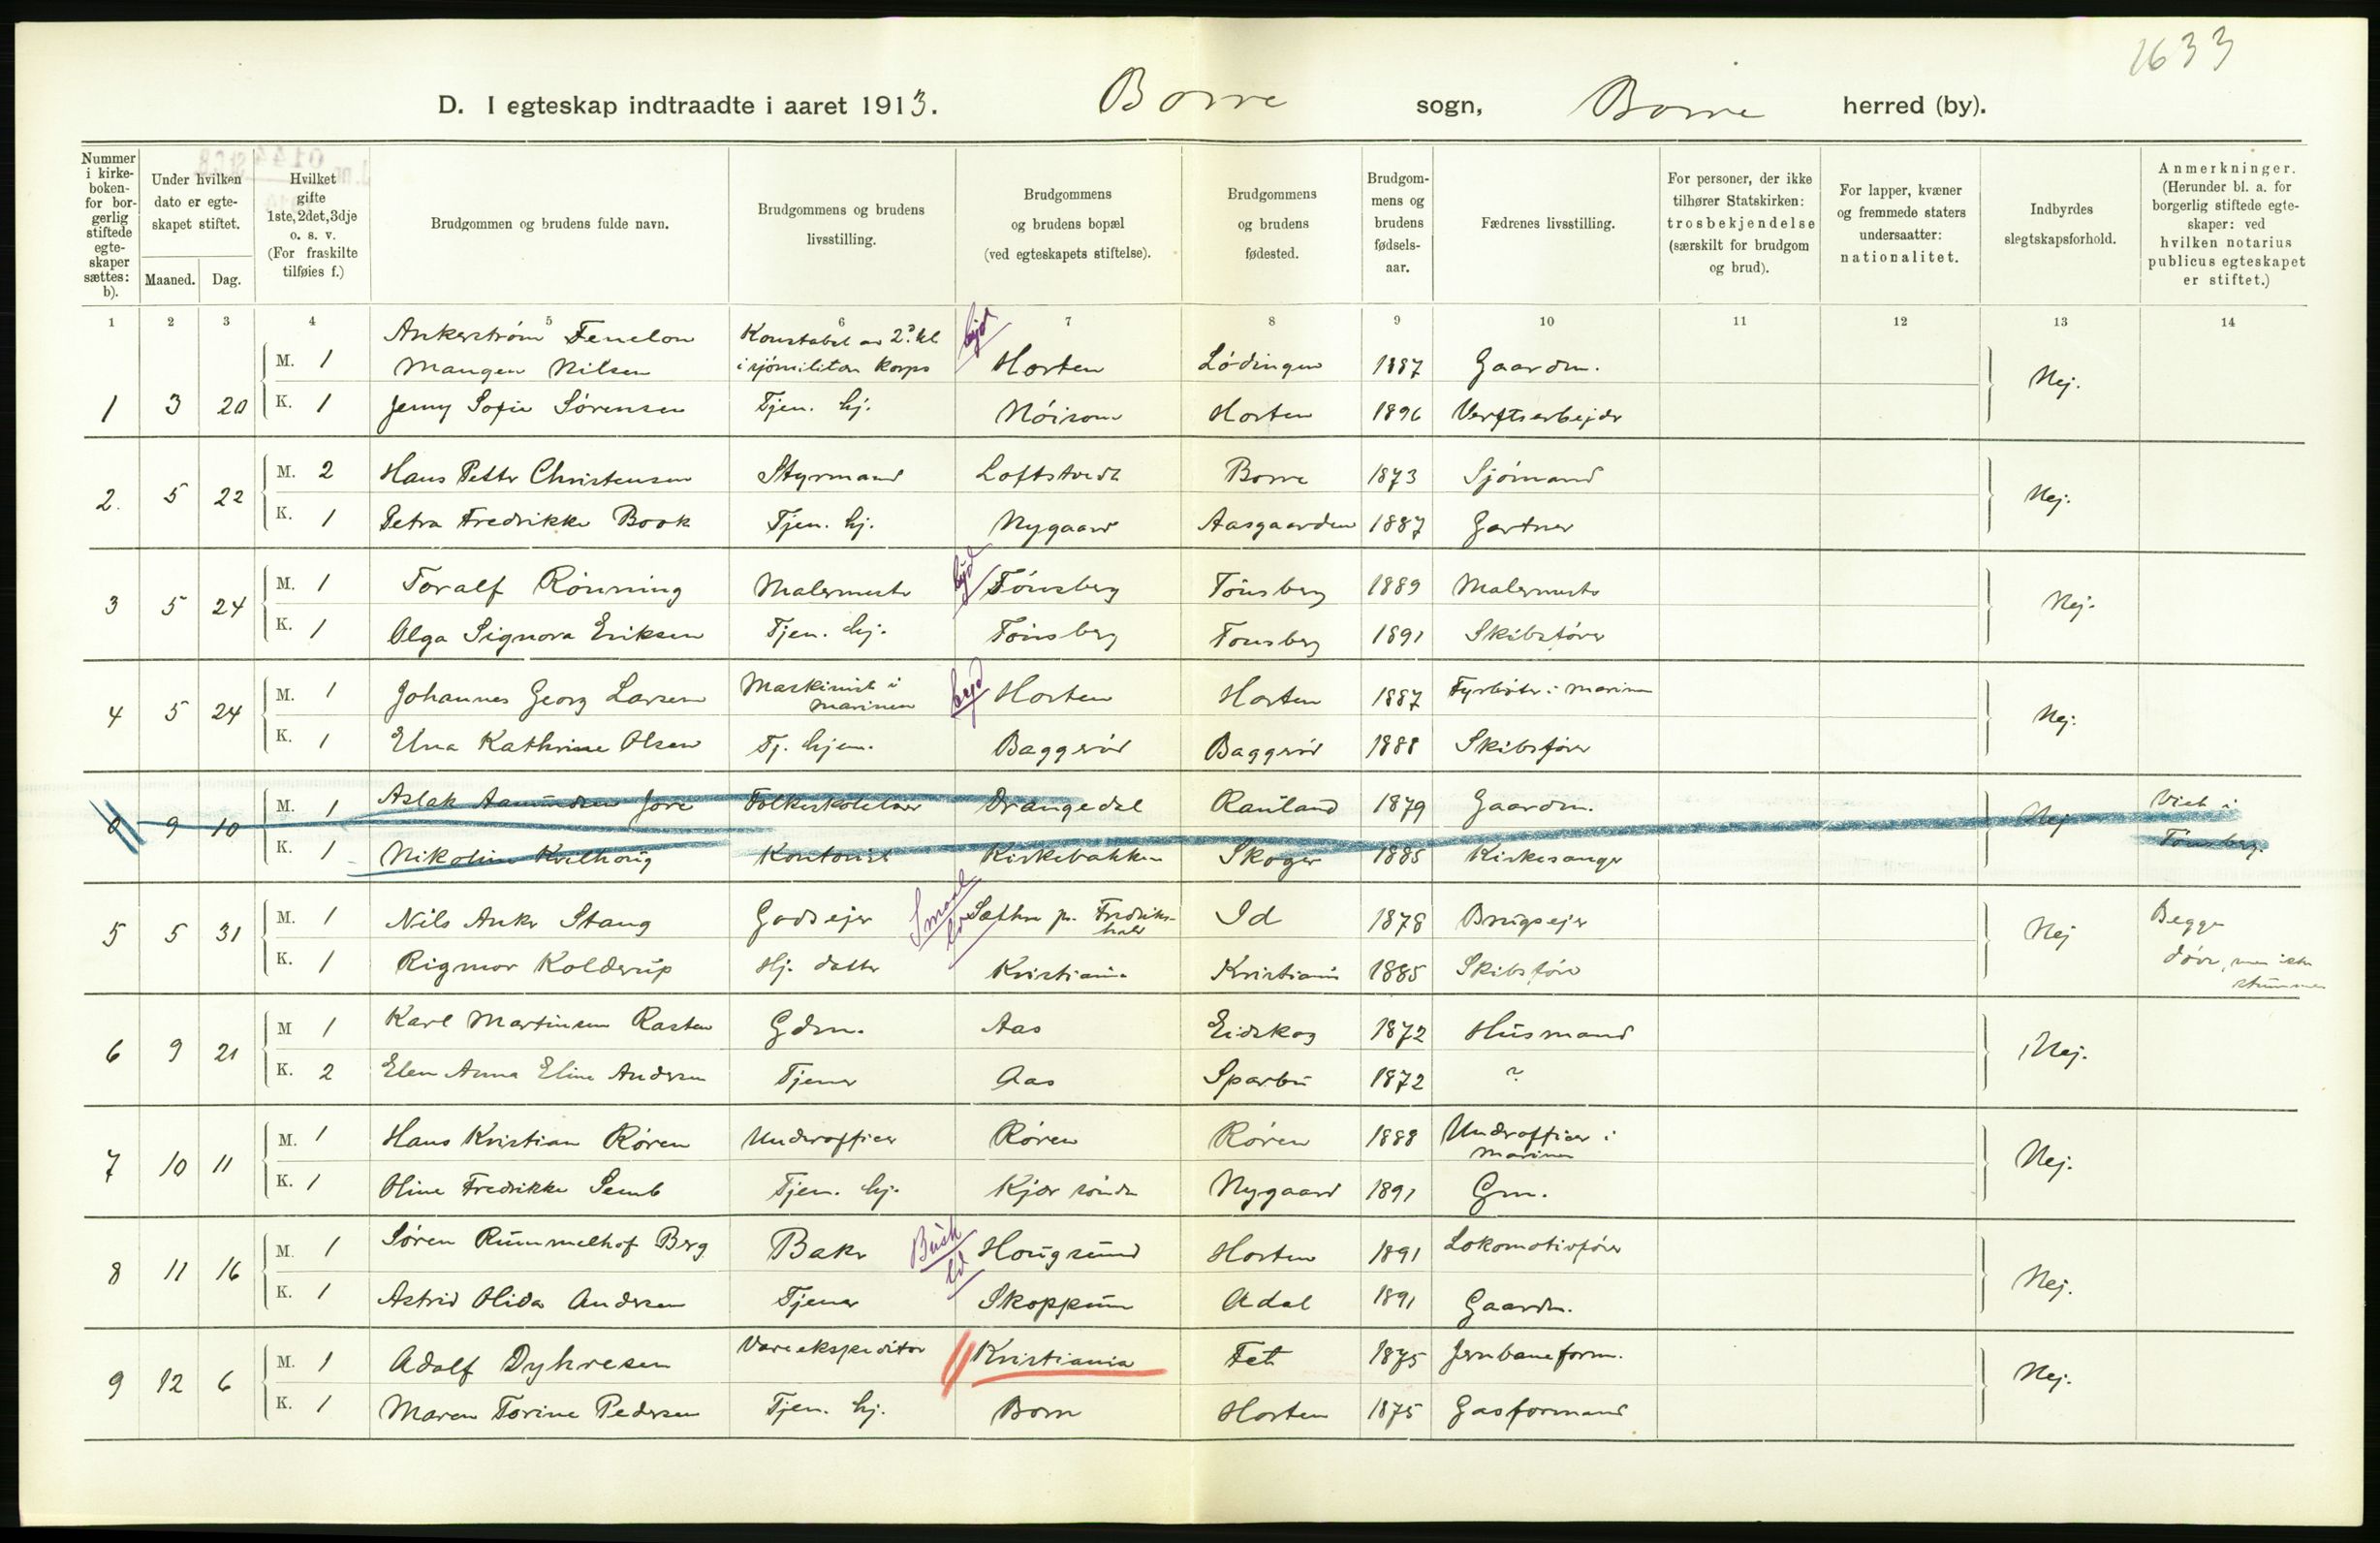 1633
D. I egteskap indtraadte i aaret 1913. Borre sogn, Borre herred (by).
Nummer i kirke-boken- for bor-gerlig stiftede egte-skaper sættes: b).
Under hvilken dato er egte-skapet stiftet.
Maaned. Dag.
Hvilket gifte 1ste, 2det, 3dje o. s. v. (For fraskilte tilføies f.)
Brudgommen og brudens fulde navn.
Brudgommens og brudens livsstilling.
Brudgommens og brudens bopæl (ved egteskapets stiftelse).
Brudgommens og brudens fødested.
Brudgom-mens og brudens fødsels-aar.
Fædrenes livsstilling.
For personer, der ikke tilhører Statskirken: trosbekjendelse (særskilt for brudgom og brud).
For lapper, kvæner og fremmede staters undersaatter: nationalitet.
Indbyrdes slegtskapsforhold.
Anmerkninger. (Herunder bl. a. for borgerlig stiftede egte-skaper: ved hvilken notarius publicus egteskapet er stiftet.)
1 2 3 4 5 6 7 8 9 10 11 12 13 14
Ankerstrøm Fenelon Konstabel av 2. kl byd
M. 1 Mangen Nilsen i sjømilitær korps Horten Lødingen 1887 Gaardm. Nej.
1 3 20 K. 1 Jenny Sofie Sørensen Tjen. hj. Nøisom Horten 1896 Verftsarbejdr
M. 2 Hans Petter Christensen Styrmand Loftstvedt Borre 1873 Sjømand
2. 5 22 K. 1 Petra Fredrikke Book Tjen. hj. Nygaard Aasgaarden 1887 Gartner Nej.
M. 1 Toralf Rønning Malermester byd Tønsberg Tønsberg 1889 Malermester
3 5 24 K. 1 Olga Signora Eriksen Tjen. hj. Tønsberg Tønsberg 1891 Skibsfører Nej.
M. 1 Johannes Georg Larsen Maskinist i marinen byd Horten Horten 1887 Fyrbøter i marinen
4 5 24 K. 1 Elna Kathrine Olsen Tj. hjem. Baggerød Baggerød 1888 Skibsfører Nej.
M. 1 Aslak Aamundsen Jore Folkeskolelærer Drangedal Rauland 1879 Gaardm. Viet i
9 10 K. 1 Nikoline Kvelhoug Kontorist Kirkebakken Skoger 1885 Kirkesanger Nej Tønsberg.
M. 1 Nils Anker Stang Godsejer Smaal ene Sæthre pr. Fredriks-hald Id 1878 Brugsejer Begge
5 5 31 K. 1 Rigmor Kolderup Hj. datter Kristiania Kristiania 1885 Skibsfører Nej døve, men ikke stumme
M 1 Karl Martinsen Rasten Gdm. Aas Eidskog 1872 Husmand
6 9 21 K. 2 Elen Anna Eline Andersen Tjener Aas Sparbu 1872 ? Nej.
M. 1 Hans Kristian Røren Underofficer Røren Røren 1888 Underofficer i marinen
7 10 11 K. 1 Oline Fredrikke Semb Tjen. hj. Kjær søndre Nygaard 1891 Gm. Nej.
M. 1 Søren Rummelhof Berg Baker Busk ed Hougsund Horten 1891 Lokomotivfører
8 11 16 K. 1 Astrid Olida Andersen Tjener Skoppum Adal 1891 Gaardm. Nej.
M. 1 Adolf Dyhresen Vareekspeditør Kristiania Fet 1875 Jernbaneform.
9 12 6 K. 1 Maren Torine Pedersen Tjen. hj. Borre Horten 1875 Gasformand Nej.